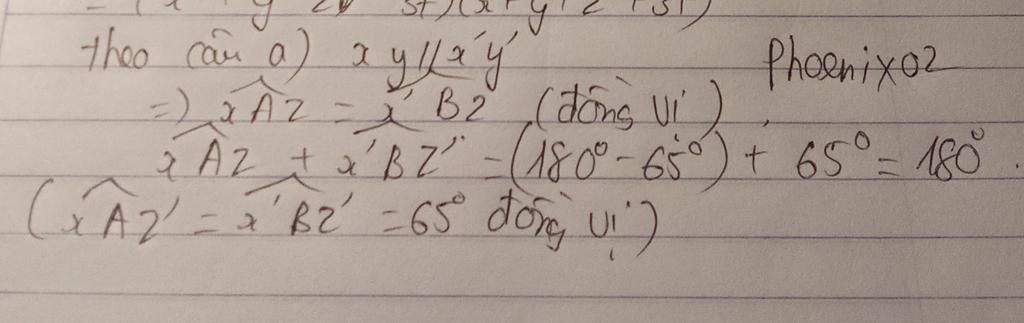 theo câu a) xy // x'y'
Phoenix02
=) xAz = x'Bz (đồng vị)
xAz + x'Bz' = (180° - 65°) + 65° = 180°.
(xAz' = x'Bz' = 65° đồng vị)